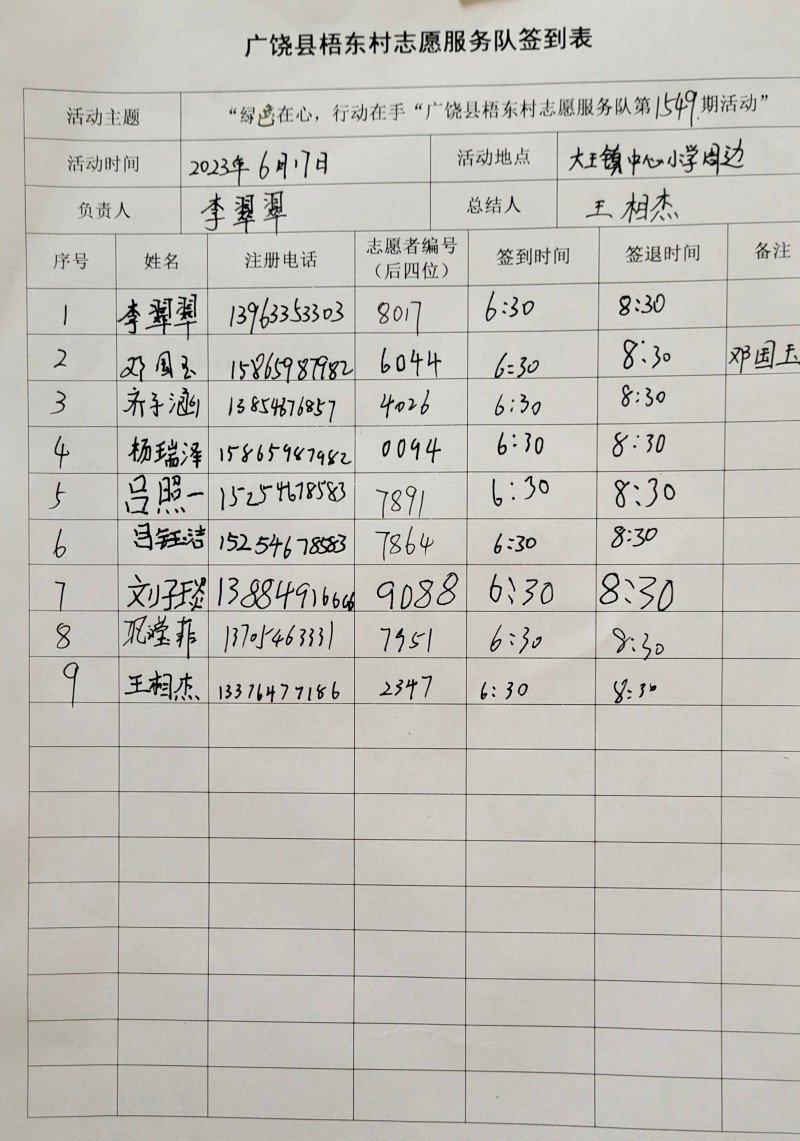 广饶县梧东村志愿服务队签到表
活动主题 “绿色在心，行动在手“广饶县梧东村志愿服务队第1549期活动”
活动时间 2023年6月17日 活动地点 大王镇中心小学周边
负责人 李翠翠 总结人 王相杰
序号 姓名 注册电话 志愿者编号（后四位） 签到时间 签退时间 备注
1 李翠翠 13963353303 8017 6:30 8:30
2 邓国玉 15865987982 6044 6:30 8:30 邓国玉
3 齐子涵 13854676857 4026 6:30 8:30
4 杨瑞泽 15865987982 0094 6:30 8:30
5 吕照一 15254678583 7891 6:30 8:30
6 吕钰洁 15254678583 7864 6:30 8:30
7 刘子琰 13884916666 9088 6:30 8:30
8 巩滢菲 13705463331 7951 6:30 8:30
9 王相杰 13376477186 2347 6:30 8:30